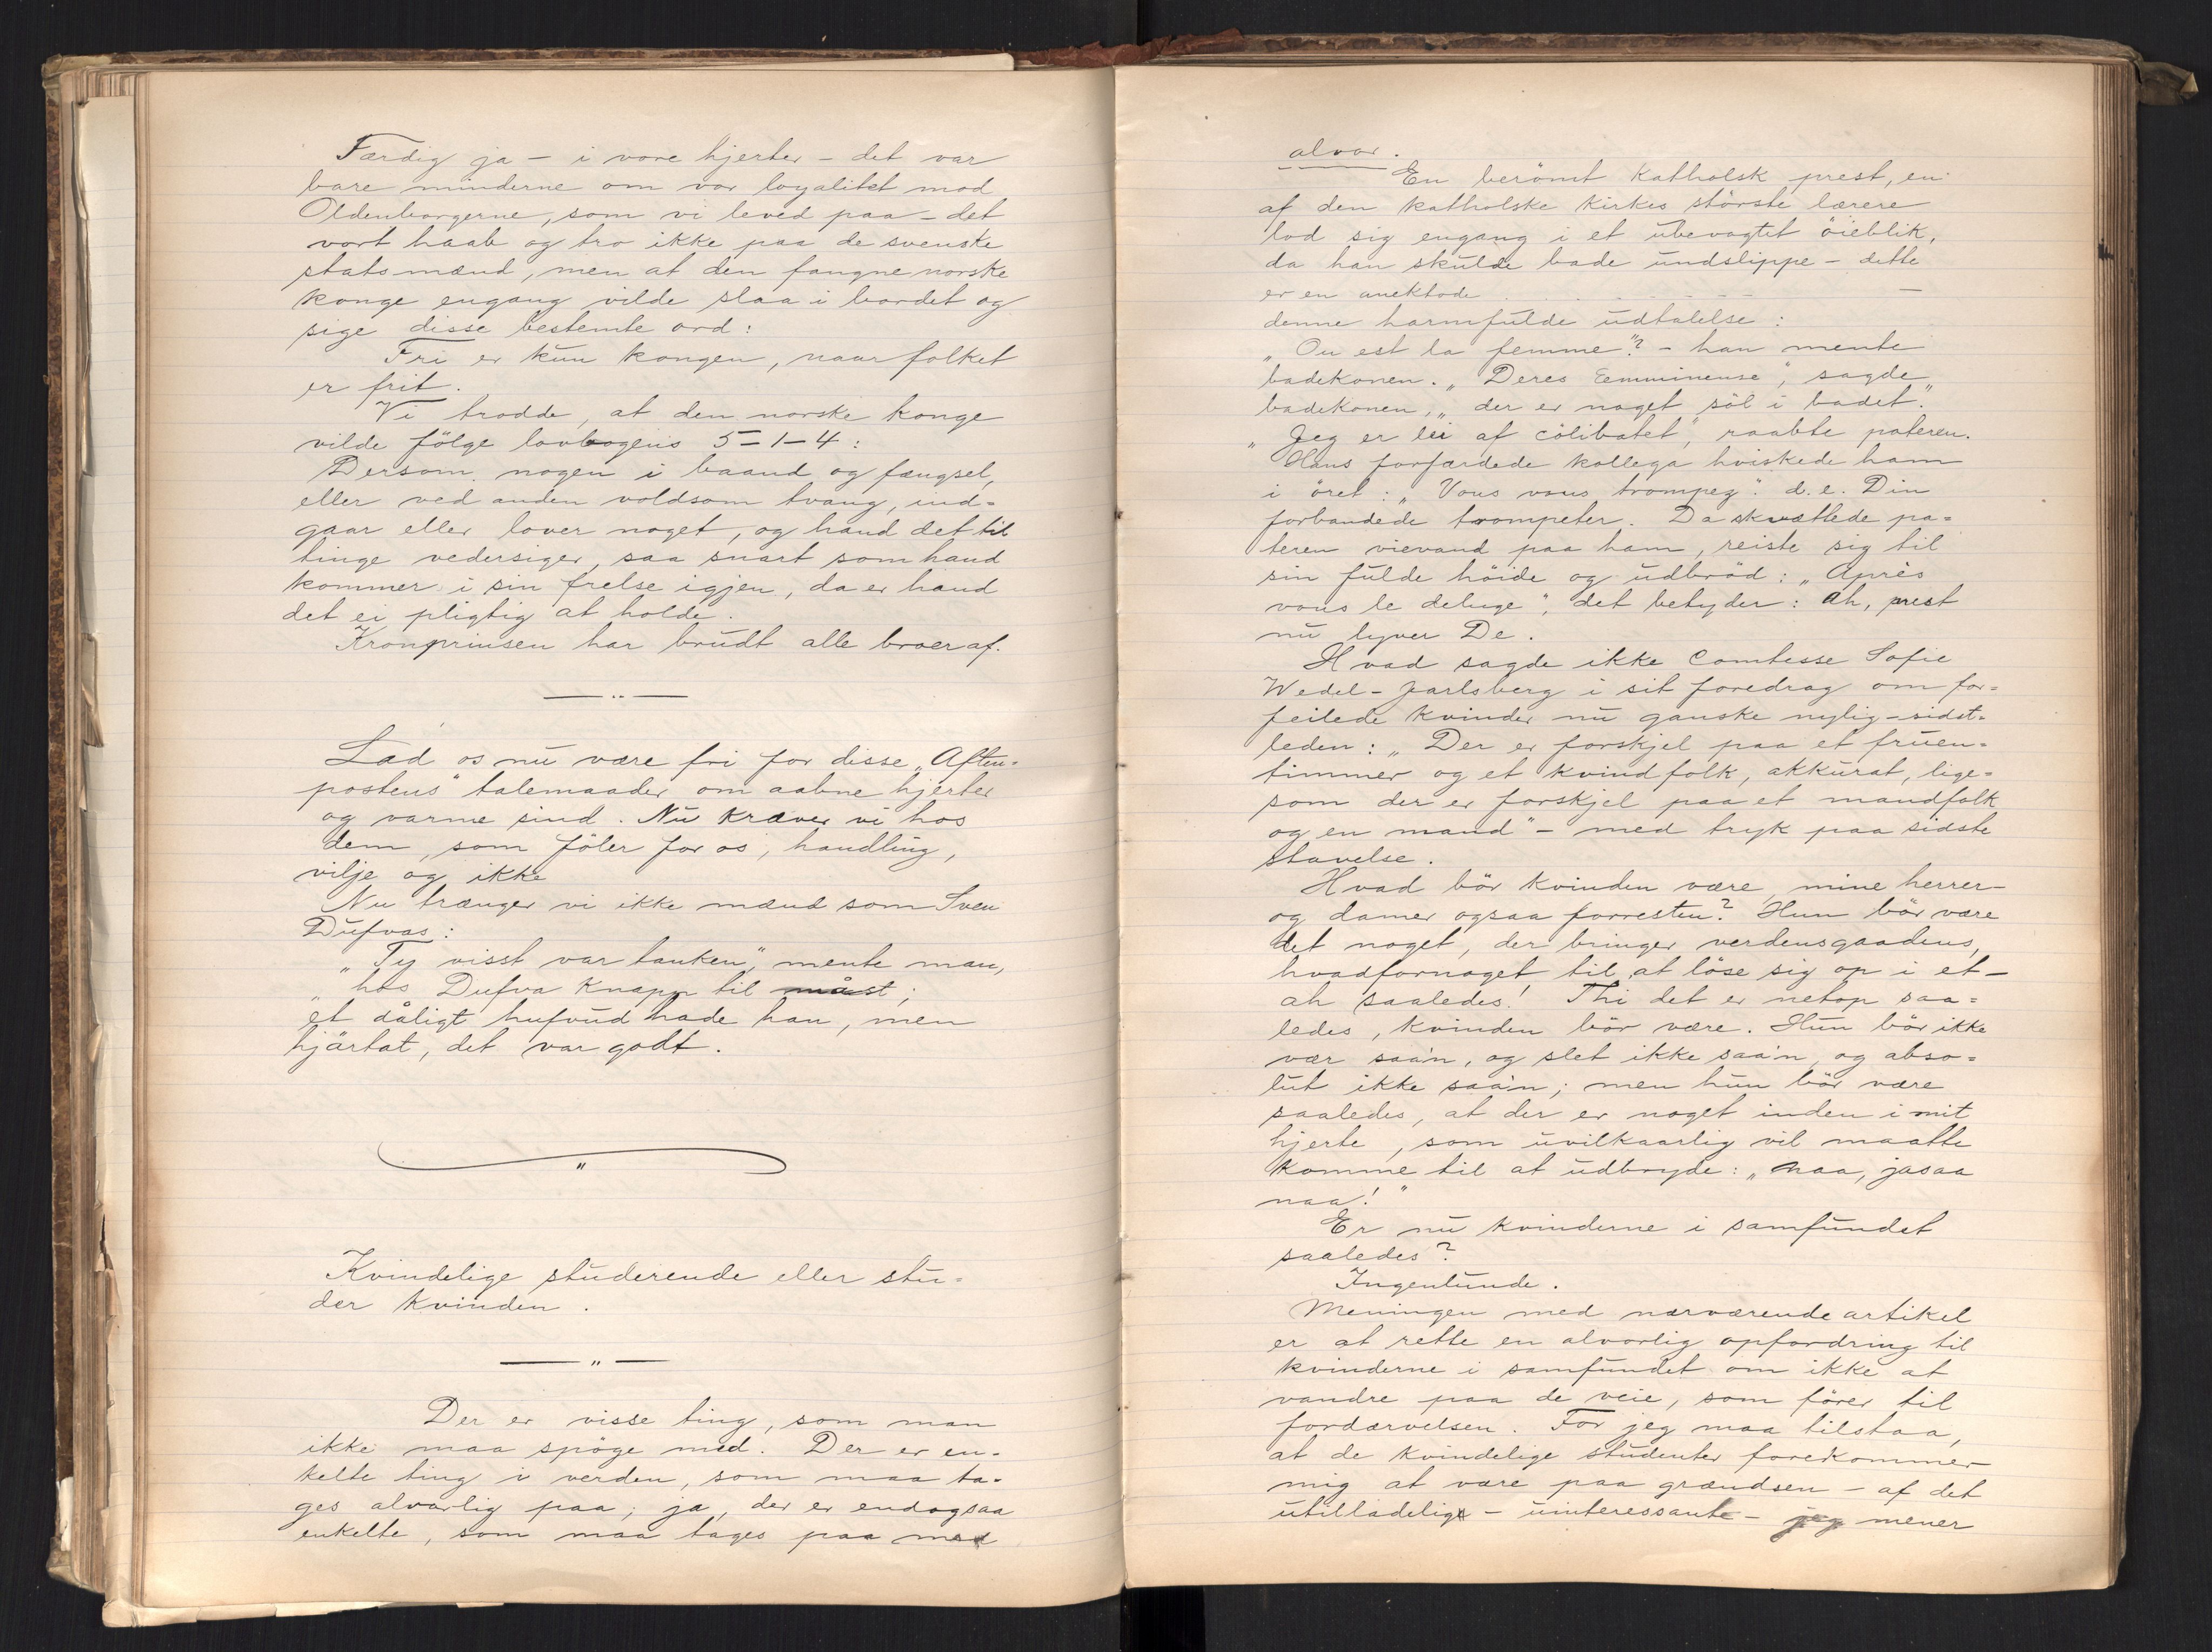 Færdig ja – i vore hjerter – det var
bare minderne om vor loyalitet mod
Oldenborgerne, som vi leved paa – det
vort haab og tro ikke paa de svenske
statsmænd, men at den fangne norske
konge engang vilde slaa i bordet og
sige disse bestemte ord:
Fri er kun kongen, naar folket
er frit.
Vi trodde, at den norske konge
vilde fölge lovbogens 5–1–4:
Dersom nogen i baand og fængsel,
eller ved anden voldsom tvang, ind=
gaar eller lover noget, og hand det til
tinge vedersiger, saa snart som hand
kommer i sin frelse igjen, da er hand
det ei pligtig at holde.
Kronprinsen har brudt alle broer af.
Lad os nu være fri for disse „Aften=
postens" talemaader om aabne hjerter
og varme sind. Nu kræver vi hos
dem, som föler for os, handling,
vilje og ikke
Nu trænger vi ikke mænd som Sven
Dufvas:
„Ty visst var tanken", mente man,
„hos Dufva knapp til måst;
et dåligt hufvud hade han, men
hjärtat, det var godt.
Kvindelige studerende eller stu=
der kvinden.
Der er visse ting, som man
ikke maa spöge med. Der er en=
kelte ting i verden, som maa ta=
ges alvorlig paa; ja, der er endogsaa
enkelte, som maa tages paa med
alvor.
En berömt katholsk prest, en
af den katholske kirkes störste lærere
lod sig engang i et ubevogtet öieblik,
da han skulde bade undslippe – dette
er en anektode –
denne harmfulde udtalelse:
„Ou est la femme"? – han mente
badekonen. „Deres Eemminense", sagde
badekonen, „der er noget söl i badet."
„Jeg er lei af cölibatet", raabte pateren.
Hans forfærdede kollega hviskede ham
i öret: „Vous vous trompez". d.e. Din
forbandede trompeter. Da skvættede pa=
teren vievand paa ham, reiste sig til
sin fulde höide og udbröd: „Après
vous le deluge", det betyder: Ah, prest
nu lyver De.
Hvad sagde ikke Comtesse Sofie
Wedel-Jarlsberg i sit foredrag om for=
feilede kvinder nu ganske nylig – sidst=
leden: „Der er forskjel paa et fruen=
timmer og et kvindfolk, akkurat, lige=
som der er forskjel paa et mandfolk
og en mand" – med tryk paa sidste
stavelse.
Hvad bör kvinden være, mine herrer –
og damer ogsaa forresten? Hun bör være
det noget, der bringer verdensgaadens,
hvadfornoget til at löse sig op i et –
ah saaledes! Thi det er netop saa=
ledes, kvinden bör være. Hun bör ikke
vær saa'n, og slet ikke saa'n, og abso=
lut ikke saa'n; men hun bör være
saaledes, at der er noget inden i mit
hjerte, som uvilkaarlig vil maatte
komme til at udbryde: „naa, jasaa
naa!"
Er nu kvinderne i samfundet
saaledes?
Ingenlunde.
Meningen med nærværende artikel
er at rette en alvorlig opfordring til
kvinderne i samfundet om ikke at
vandre paa de veie, som förer til
fordærvelsen. For jeg maa tilstaa,
at de kvindelige studenter forekommer
mig at være paa grændsen – af det
utilladelige – uinteressante – jeg mener